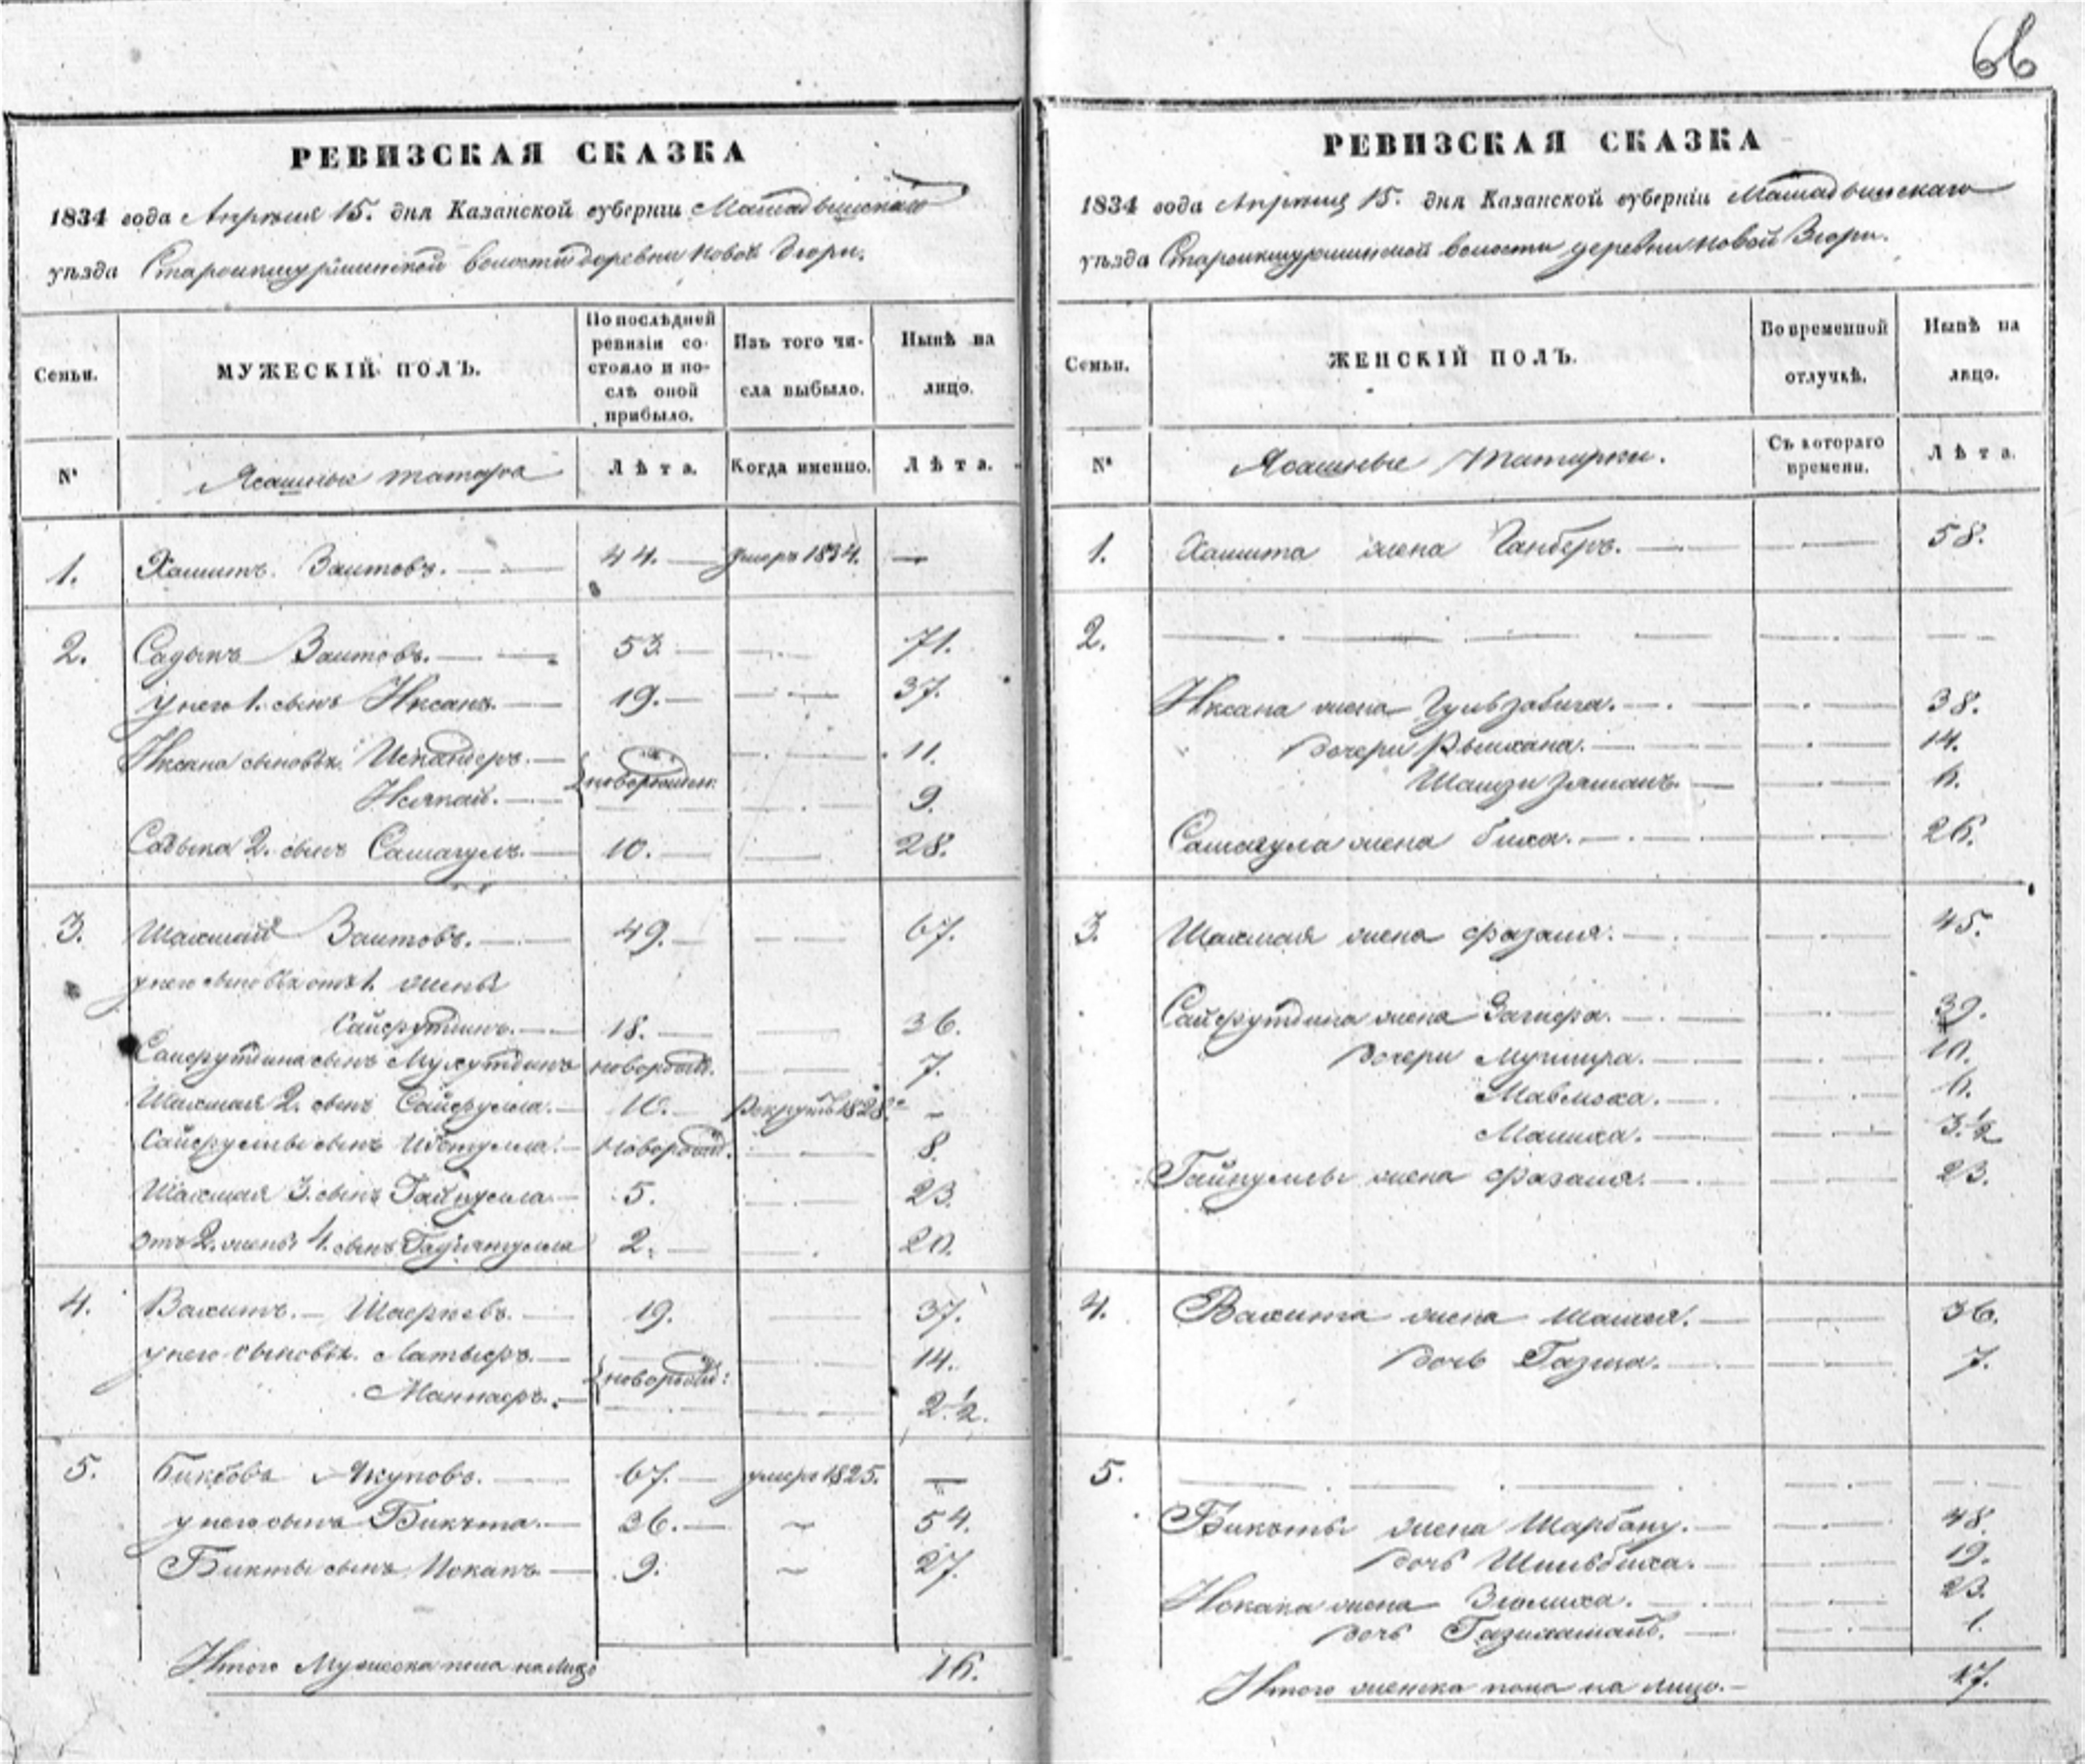 66
РЕВИЗСКАЯ СКАЗКА
1834 года Апрѣля 15. дня Казанской губернiи Мамадышскаго
уѣзда волости деревни новой Зюри.
Семьи.
МУЖЕСКIЙ ПОЛЪ.
По послѣдней ревизiи состояло и послѣ оной прибыло.
Изъ того числа выбыло.
Нынѣ на лицо.
№
Ясашные татара
Лѣта.
Когда именно.
Лѣта.
1. Хашитъ Заитовъ. 44. умеръ 1834. —
2. Садыкъ Заитовъ. 53. 71.
у него 1. сынъ Иксанъ. 19. 37.
Иксана сыновья Искандеръ. 11.
новорожден.
9.
Садыка 2. сынъ Сашагулъ. 10. 28.
3. Шахмай Заитовъ. 49. 67.
у него сыновья отъ 1. жены
Сайфутдинъ. 18. 36.
Сайфутдина сынъ Мухутдинъ новорожд. 7.
Шахмая 2. сынъ Сайфулла. 10. Рекрутъ 1828го —
Сайфуллы сынъ новорожд. 8.
Шахмая 3. сынъ Гайнулла 5. 23.
отъ 2. жены 4. сынъ 2. 20.
4. Вахитъ. 19. 37.
у него сыновья. 14.
новорожд:
2 1/2.
5. Бикбовъ Якуповъ. 67. умеръ 1825. —
у него сынъ Бикъта. 36. 54.
Бикты сынъ Искакъ 9. 27.
Итого Мужеска пола на лицо 16.
РЕВИЗСКАЯ СКАЗКА
1834 года Апрѣля 15. дня Казанской губернiи Мамадышскаго
уѣзда волости деревни новой Зюри.
Семьи.
ЖЕНСКIЙ ПОЛЪ.
Во временной отлучкѣ.
Нынѣ на лицо.
№
Ясашные Татарки.
Съ котораго времени.
Лѣта.
1. Хашита жена Ганберъ. 58.
2.
Иксана жена Гульзабига. 38.
дочери 14.
6.
Сашагула жена биха. 26.
3. Шахмая жена Фазаля. 45.
Сайфутдина жена Загпера. 39.
дочери 10.
6.
Малиха. 3 1/2
Гайнуллы жена Фазаля. 23.
4. Вахита жена 36.
дочь 7.
5.
Бикъты жена Шарбану. 48.
дочь 19.
Искака жена Зюлиха. 23.
дочь 1.
Итого женска пола на лицо. 17.